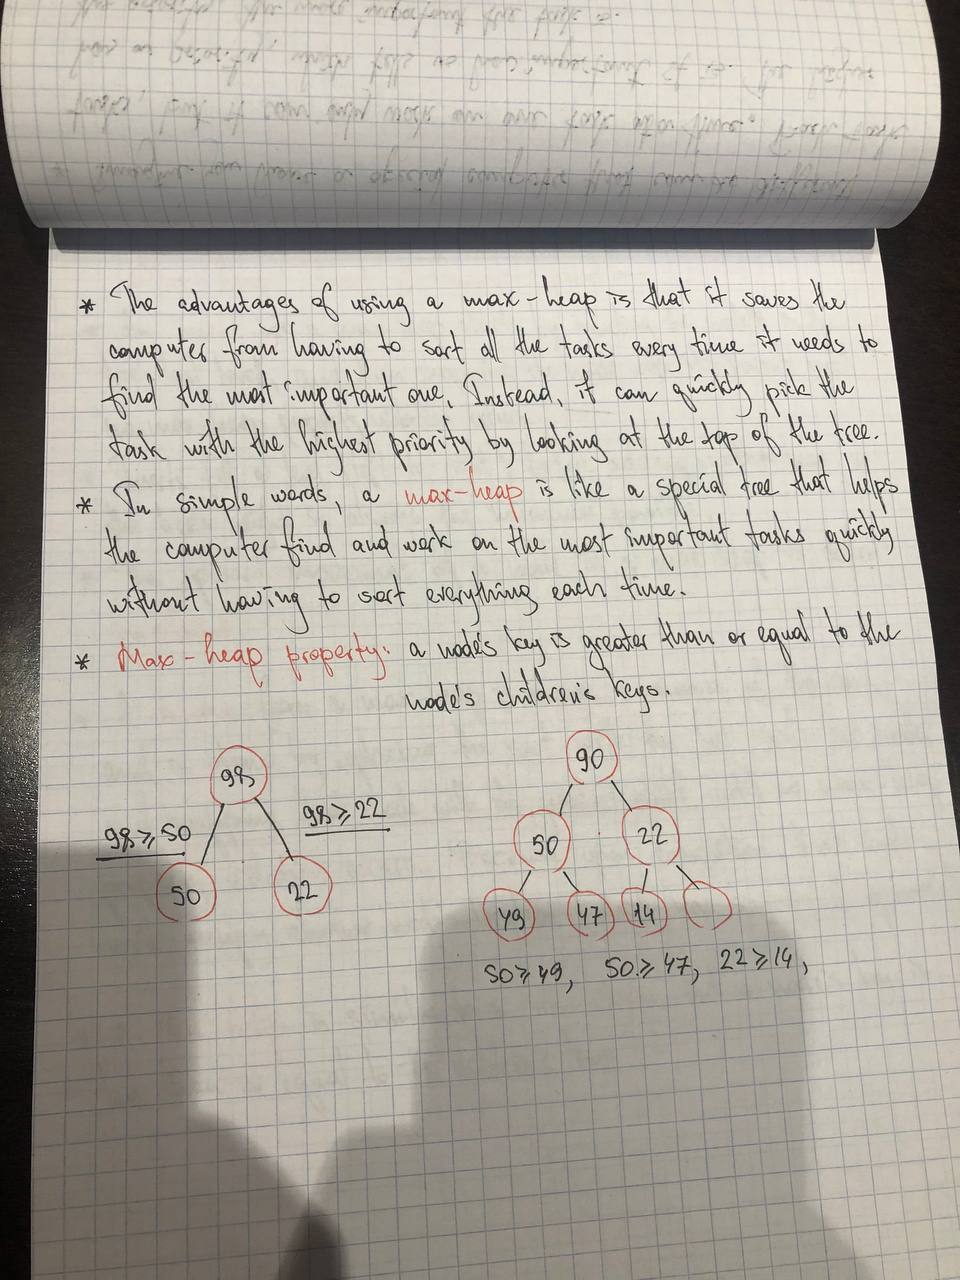 * The advantages of using a max-heap is that it saves the
computer from having to sort all the tasks every time it needs to
find the most important one. Instead, it can quickly pick the
task with the highest priority by looking at the top of the tree.
* In simple words, a max-heap is like a special tree that helps
the computer find and work on the most important tasks quickly
without having to sort everything each time.
* Max-heap property: a node's key is greater than or equal to the
node's children's keys.
98
98 ≥ 50
98 ≥ 22
50
22
90
50
22
49
47
14
50 ≥ 49, 50 ≥ 47, 22 ≥ 14,